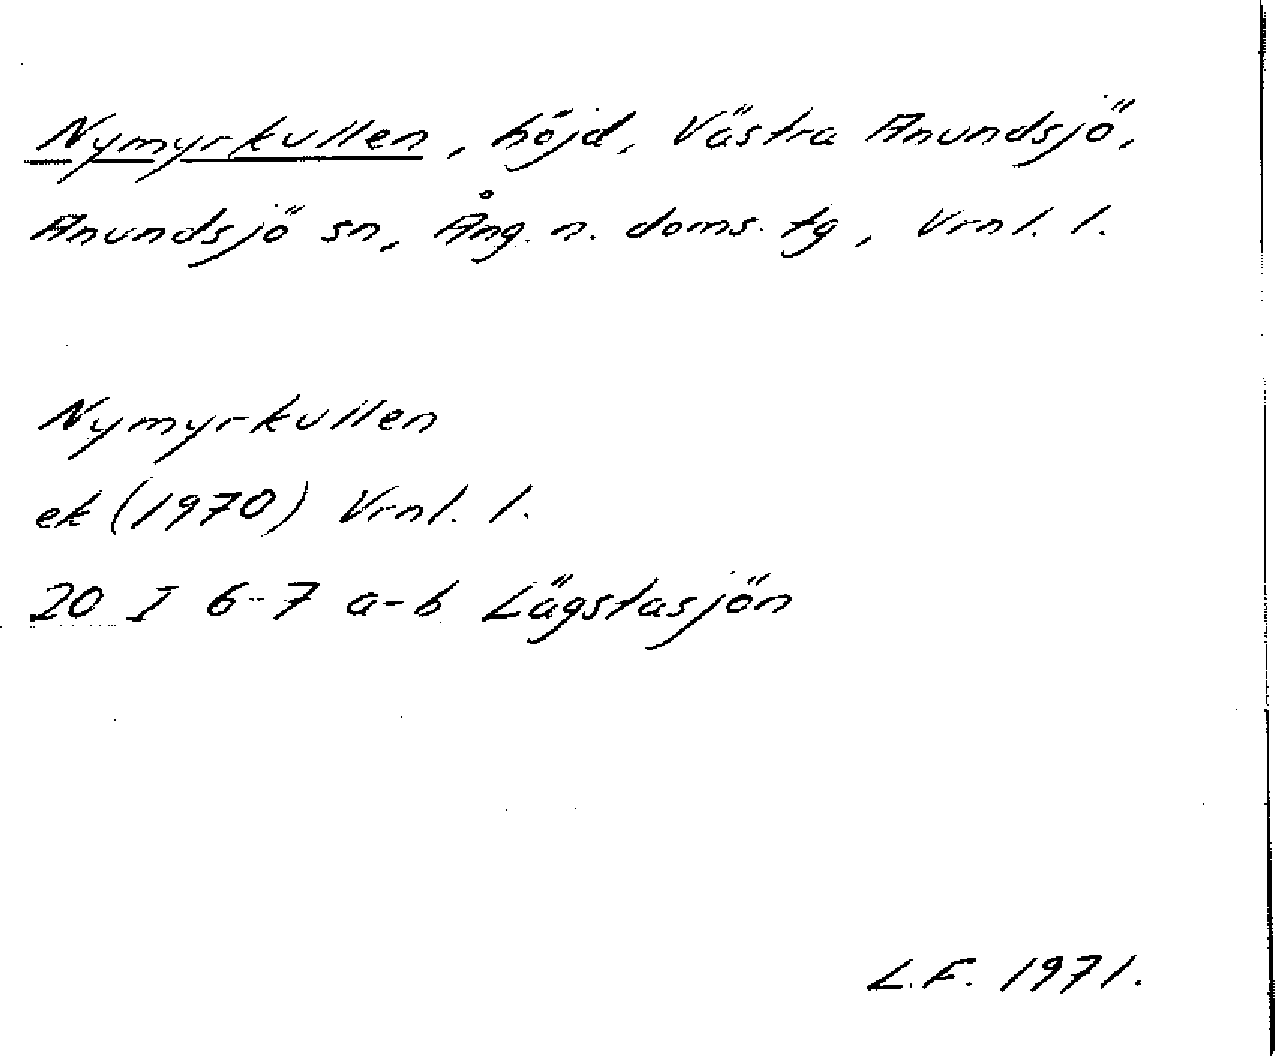 Nymyrkullen, höjd, Västra Anundsjö,
Anundsjö sn, Ång. n. doms. tg, Vrnl. l.
Nymyrkullen
ek (1970) Vrnl. l.
20 I 6-7 a-b Lägstasjön
L.F. 1971.